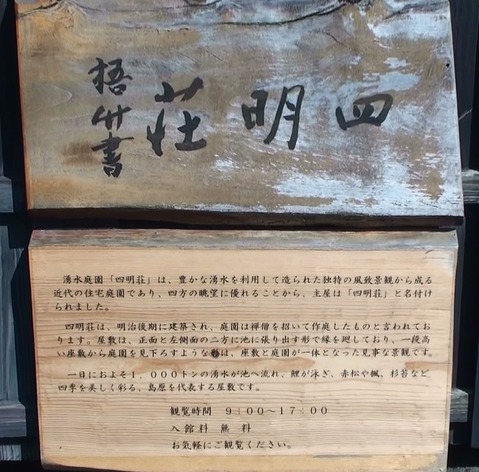 四明荘
梧竹書
湧水庭園「四明荘」は、豊かな湧水を利用して造られた独特の風致景観から成る
近代の住宅庭園であり、四方の眺望に優れることから、主屋は「四明荘」と名付け
られました。
四明荘は、明治後期に建築され、庭園は禅僧を招いて作庭したものと言われてお
ります。屋敷は、正面と左側面の二方に池に張り出す形で縁を廻しており、一段高
い座敷から庭園を見下ろすような趣は、座敷と庭園が一体となった見事な景観です。
一日におよそ1,000トンの湧水が池へ流れ、鯉が泳ぎ、赤松や楓、杉苔など
四季を美しく彩る、島原を代表する屋敷です。
観覧時間 9:00~17:00
入館料 無料
お気軽にご観覧ください。